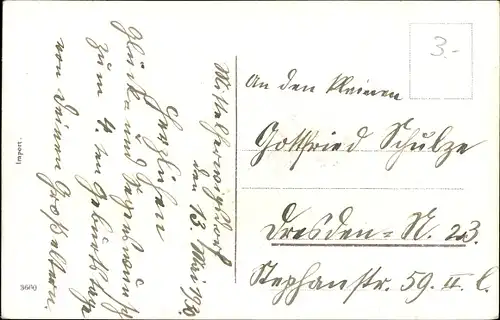 Mittelherwigsdorf
den 13. Mai 1930.
Herzlichen
Glück- und Segenswunsch
zum 4. ten Geburtstage
von Deinen Großeltern.
3.-
An den Kleinen
Gottfried Schulze
Dresden=N. 23
Stephanstr. 59. II. l.
Import.
3660